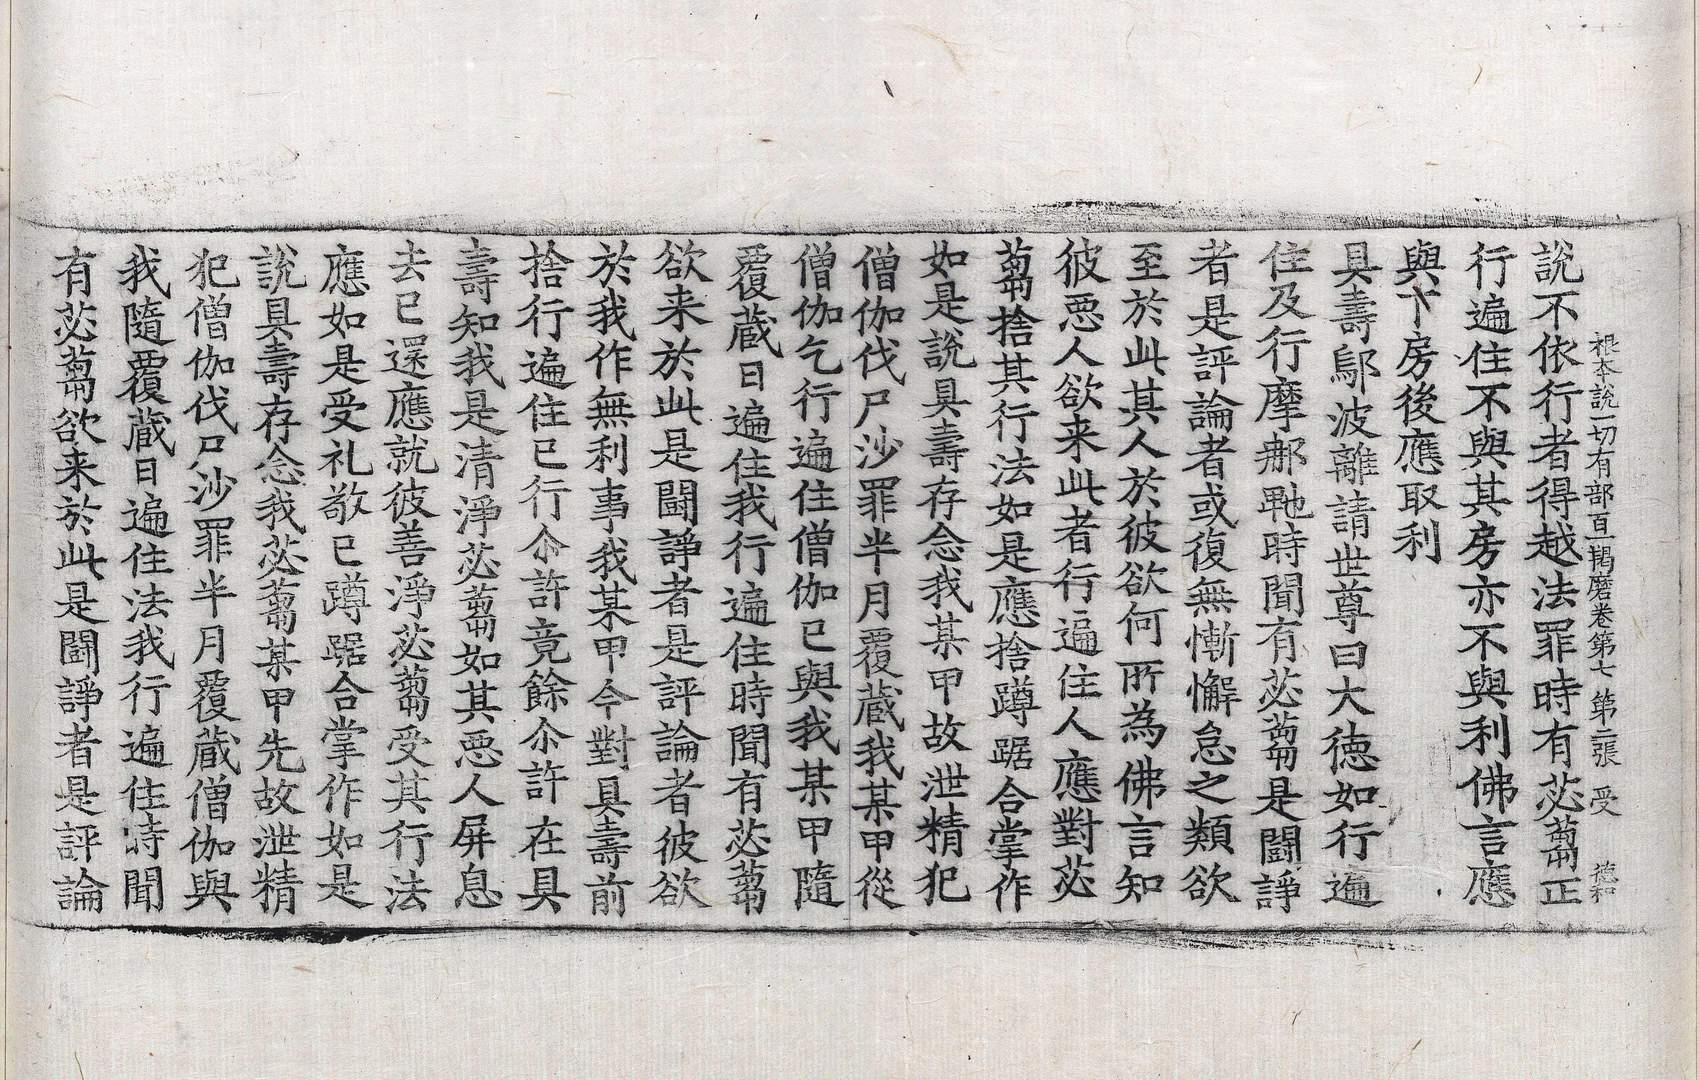 根本說一切有部百一羯磨卷第七 第二張 受 德和
說不依行者得越法罪時有苾蒭正
行遍住不與其房亦不與利佛言應
與下房後應取利
具壽鄔波離請世尊曰大德如行遍
住及行摩那䫂時聞有苾蒭是鬪諍
者是評論者或復無慚懈怠之類欲
至於此其人於彼欲何所為佛言知
彼惡人欲来此者行遍住人應對苾
蒭捨其行法如是應捨蹲踞合掌作
如是說具壽存念我某甲故泄精犯
僧伽伐尸沙罪半月覆蔵我某甲從
僧伽乞行遍住僧伽已與我某甲隨
覆蔵日遍住我行遍住時聞有苾蒭
欲来於此是鬪諍者是評論者彼欲
於我作無利事我某甲今對具壽前
捨行遍住已行尒許竟餘尒許在具
壽知我是清淨苾蒭如其惡人屏息
去已還應就彼善淨苾蒭受其行法
應如是受礼敬已蹲踞合掌作如是
說具壽存念我苾蒭某甲先故泄精
犯僧伽伐尸沙罪半月覆蔵僧伽與
我隨覆蔵日遍住法我行遍住時聞
有苾蒭欲来於此是鬪諍者是評論